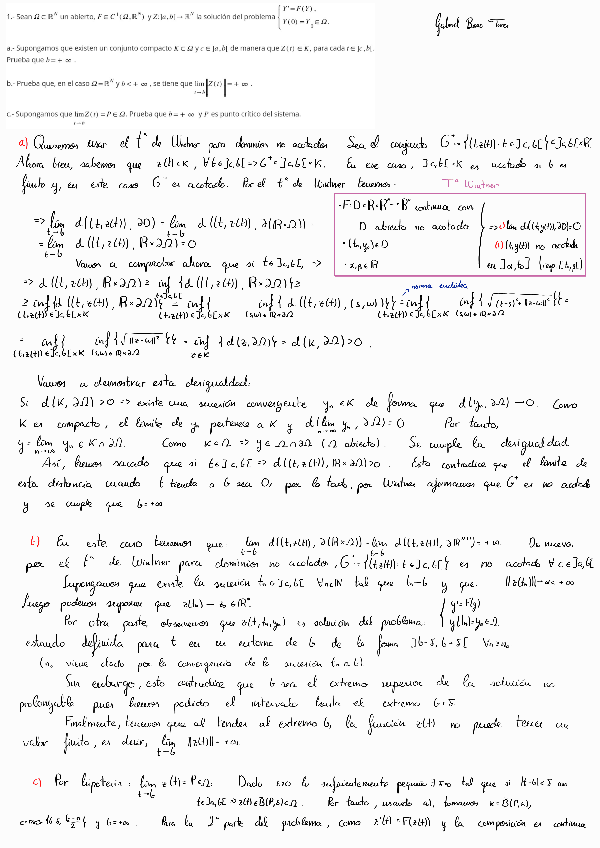 1.- Sean Ω ⊂ ℝᴺ un abierto, F ∈ C¹(Ω,ℝᴺ) y Z:]a,b[ → ℝᴺ la solución del problema { Y' = F(Y),
Y(0) = Y₀ ∈ Ω.
a.- Supongamos que existen un conjunto compacto K ⊂ Ω y c ∈ ]a,b[ de manera que Z(t) ∈ K, para cada t ∈ ]c,b[.
Prueba que b = +∞.
b.- Prueba que, en el caso Ω = ℝᴺ y b < +∞, se tiene que lim_{t→b} ‖Z(t)‖ = +∞.
c.- Supongamos que lim_{t→b} Z(t) = P ∈ Ω. Prueba que b = +∞ y P es punto crítico del sistema.
a) Queremos usar el tª de Wintner para dominios no acotados. Sea el conjunto G⁺ = {(t,z(t)) : t ∈ ]c,b[} ⊂ ]a,b[ × ℝ.
Ahora bien, sabemos que z(t) ∈ K, ∀t ∈ ]c,b[ => G⁺ ⊂ ]c,b[ × K. En ese caso, ]c,b[ × K es acotado si b es
finito y, en este caso G⁺ es acotado. Por el tª de Wintner tenemos:
Tª Wintner
· F: D ⊂ ℝ × ℝᴺ → ℝᴺ continua con
D abierto no acotado
· (t₀,y₀) ∈ D
· α,β ∈ ℝ
=> lim_{t→b} d((t,z(t)), ∂D) = lim_{t→b} d((t,z(t)), ∂(ℝ×Ω)) =
= lim_{t→b} d((t,z(t)), ℝ×∂Ω) = 0
Vamos a comprobar ahora que si t ∈ ]c,b[, =>
=> d((t,z(t)), ℝ×∂Ω) ≥ inf_{t∈]c,b[} {d((t,z(t)), ℝ×∂Ω)} ≥
norma euclídea
≥ inf_{(t,z(t))∈]c,b[×K} {d((t,z(t)), ℝ×∂Ω)} = inf_{(t,z(t))∈]c,b[×K} { inf_{(s,w)∈ℝ×∂Ω} {d((t,z(t)), (s,w))}} = inf_{(t,z(t))∈]c,b[×K} { inf_{(s,w)∈ℝ×∂Ω} {√((t-s)²+‖z-w‖²)}} =
= inf_{(t,z(t))∈]c,b[×K} { inf_{(s,w)∈ℝ×∂Ω} {√‖z-w‖²}} = inf_{z∈K} {d(z,∂Ω)} = d(K,∂Ω) > 0.
Vamos a demostrar esta desigualdad:
Si d(K,∂Ω) > 0 => existe una sucesión convergente yₙ ∈ K de forma que d(yₙ,∂Ω) → 0. Como
K es compacto, el límite de yₙ pertenece a K y d(lim_{n→∞} yₙ, ∂Ω) = 0 Por tanto,
y = lim_{n→∞} yₙ ∈ K ∩ ∂Ω. Como K ⊂ Ω => y ∈ Ω ∩ ∂Ω (Ω abierto). Se cumple la desigualdad.
Así, hemos sacado que si t ∈ ]c,b[ => d((t,z(t)), ℝ×∂Ω) > 0. Esto contradice que el límite de
esta distancia cuando t tiende a b sea 0, por lo tanto, por Wintner afirmamos que G⁺ es no acotado
y se cumple que b = +∞
b) En este caso tenemos que lim_{t→b} d((t,z(t)), ∂(ℝ×Ω)) = lim_{t→b} d((t,z(t)), ∂ℝᴺ⁺¹) = +∞. De nuevo,
por el tª de Wintner para dominios no acotados, G⁺ = {(t,z(t)) : t ∈ ]c,b[} es no acotado ∀c ∈ ]a,b[
Supongamos que existe la sucesión tₙ ∈ ]c,b[ ∀n∈ℕ tal que tₙ → b y que ‖z(tₙ)‖ → α < +∞
Luego podemos suponer que z(tₙ) → b₀ ∈ ℝᴺ.
Por otra parte observemos que z(t,tₙ,yₙ) es solución del problema { y' = F(y)
y(tₙ) = yₙ ∈ Ω
estando definida para t en un entorno de b de la forma ]b-δ, b+δ[ ∀n ≥ n₀
(n₀ viene dado por la convergencia de la sucesión tₙ a b)
Sin embargo, esto contradice que b sea el extremo superior de la solución no
prolongable pues hemos podido el intervalo hasta el extremo b+δ
Finalmente, tenemos que al tender al extremo b, la función z(t) no puede tener un
valor finito, es decir, lim_{t→b} ‖z(t)‖ = +∞.
c) Por hipótesis: lim_{t→b} z(t) = P ∈ Ω: Dado ε>0 lo suficientemente pequeño ∃ δ>0 tal que si |t-b| < δ con
t ∈ ]a,b[ => z(t) ∈ B(P,ε) ⊂ Ω. Por tanto, usando a), tomamos K = B(P,ε),
y b = +∞. Para la 2ª parte del problema, como z'(t) = F(z(t)) y la composición es continua